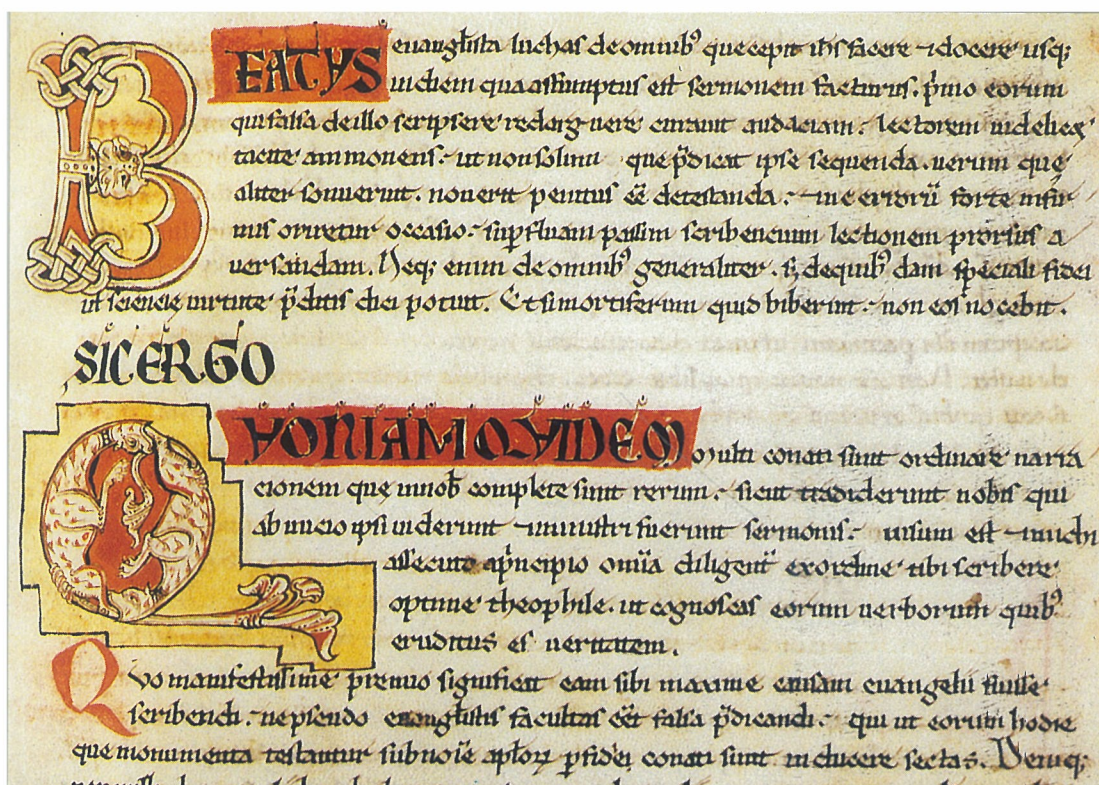 BEATUS euanglista luchas de omnib' que cepit ihs facere & docere usq;
in diem qua assumptus est sermonem facturus. pimo eorum
qui falsa de illo scripsere redarguere curauit audaciam. lectorem uidelicet
tacite ammonens. ut non solum que pdicat ipse sequenda. uerum que
aliter sonuerint. nouerit penitus ee detestanda. ne erroru forte infir
mis oriretur occasio. supfluam passim scribencium lectionem prorsus a
uersandam. Neq; enim de omnib' generaliter. s; de quib' dam speciali fidei
ut sciencie uirtute pditis dici potuit. Et si mortiferum quid biberint. non eos nocebit.
SIC ERGO
QUONIAM QUIDEM multi conati sunt ordinare narra
cionem que in nob complete sunt rerum. sicut tradiderunt nobis qui
ab inicio ipsi uiderunt & ministri fuerunt sermonis. uisum est & michi
assecuto apncipio omia diligent exordine tibi scribere
optime theophile. ut cognoscas eorum uerborum quib'
eruditus es ueritatem.
Quo manifestissime premio significat eam sibi maxime causam euangelii fuisse
scribendi. ne pseudo euanglistis facultas eet falsa pdicandi. qui ut eorum hodie
que monumenta testantur sub noie aplor pfidei conati sunt inducere sectas. Deniq;